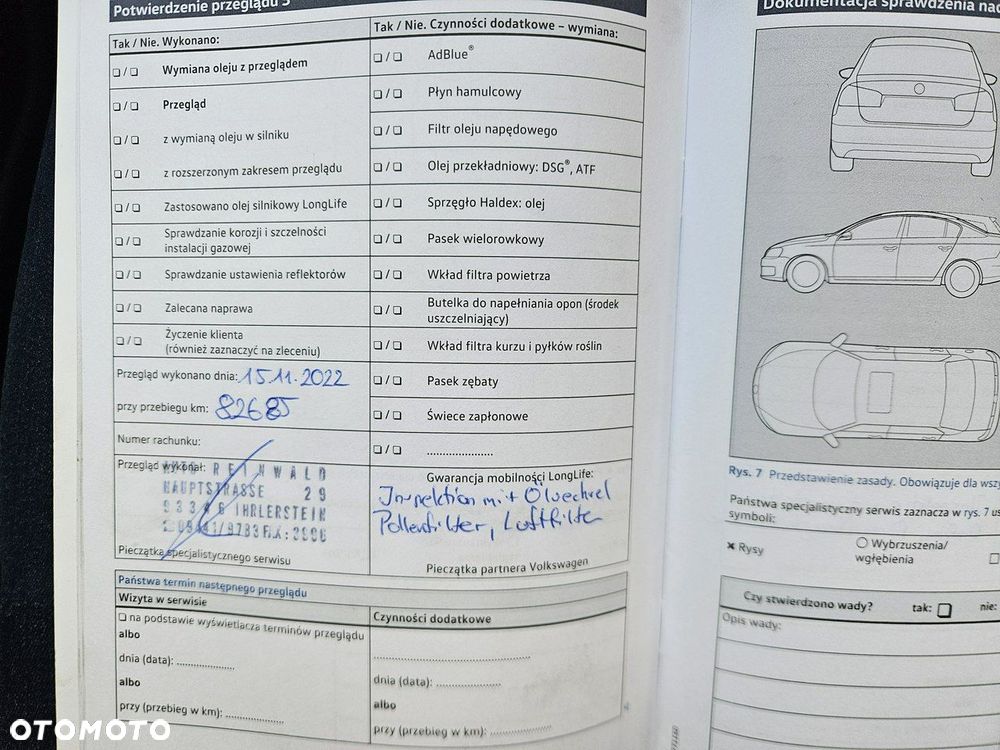 Potwierdzenie przeglądu 3
Tak / Nie. Wykonano:
Wymiana oleju z przeglądem
Przegląd
z wymianą oleju w silniku
z rozszerzonym zakresem przeglądu
Zastosowano olej silnikowy LongLife
Sprawdzanie korozji i szczelności
instalacji gazowej
Sprawdzanie ustawienia reflektorów
Zalecana naprawa
Życzenie klienta
(również zaznaczyć na zleceniu)
Przegląd wykonano dnia: 15.11.2022
przy przebiegu km: 82685
Numer rachunku:
Przegląd wykonał:
AUTO REINWALD
HAUPTSTRASSE 29
93346 IHRLERSTEIN
Pieczątka specjalistycznego serwisu
Tak / Nie. Czynności dodatkowe – wymiana:
AdBlue®
Płyn hamulcowy
Filtr oleju napędowego
Olej przekładniowy: DSG®, ATF
Sprzęgło Haldex: olej
Pasek wielorowkowy
Wkład filtra powietrza
Butelka do napełniania opon (środek
uszczelniający)
Wkład filtra kurzu i pyłków roślin
Pasek zębaty
Świece zapłonowe
Gwarancja mobilności LongLife:
Inspektion mit Ölwechsel
Pollenfilter, Luftfilter
Pieczątka partnera Volkswagen
Państwa termin następnego przeglądu
Wizyta w serwisie
na podstawie wyświetlacza terminów przeglądu
albo
dnia (data):
albo
przy (przebieg w km):
Czynności dodatkowe
dnia (data):
albo
przy (przebieg w km):
Dokumentacja sprawdzenia nad
Rys. 7 Przedstawienie zasady. Obowiązuje dla wszy
Państwa specjalistyczny serwis zaznacza w rys. 7 us
symboli:
Rysy
Wybrzuszenia/
wgłębienia
Czy stwierdzono wady? tak: nie:
Opis wady:
OTOMOTO